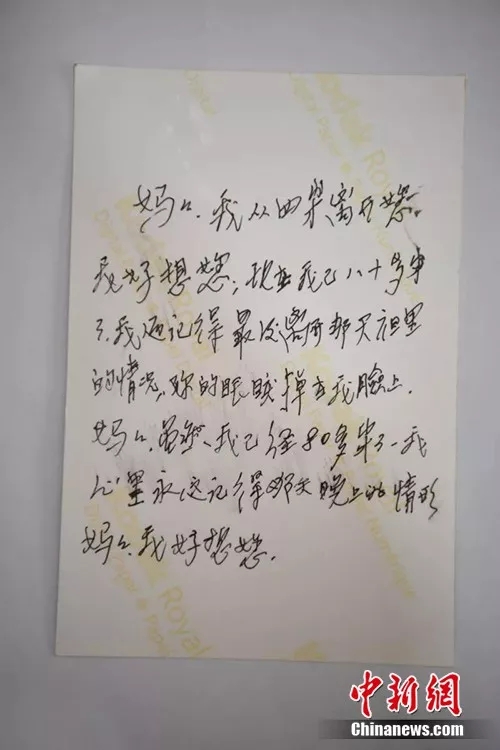 妈々.我从四岁离开您
我好想您;现在我已八十多岁
了.我还记得最后离开那天里
的情况,妳的眼睙掉在我脸上.
妈々.虽然、我已经80多岁了、我
心里永远记得那天晚上的情形
妈々.我好想您.
Kodak Royal
Digital Paper & Papier Numérique
中新網
Chinanews.com